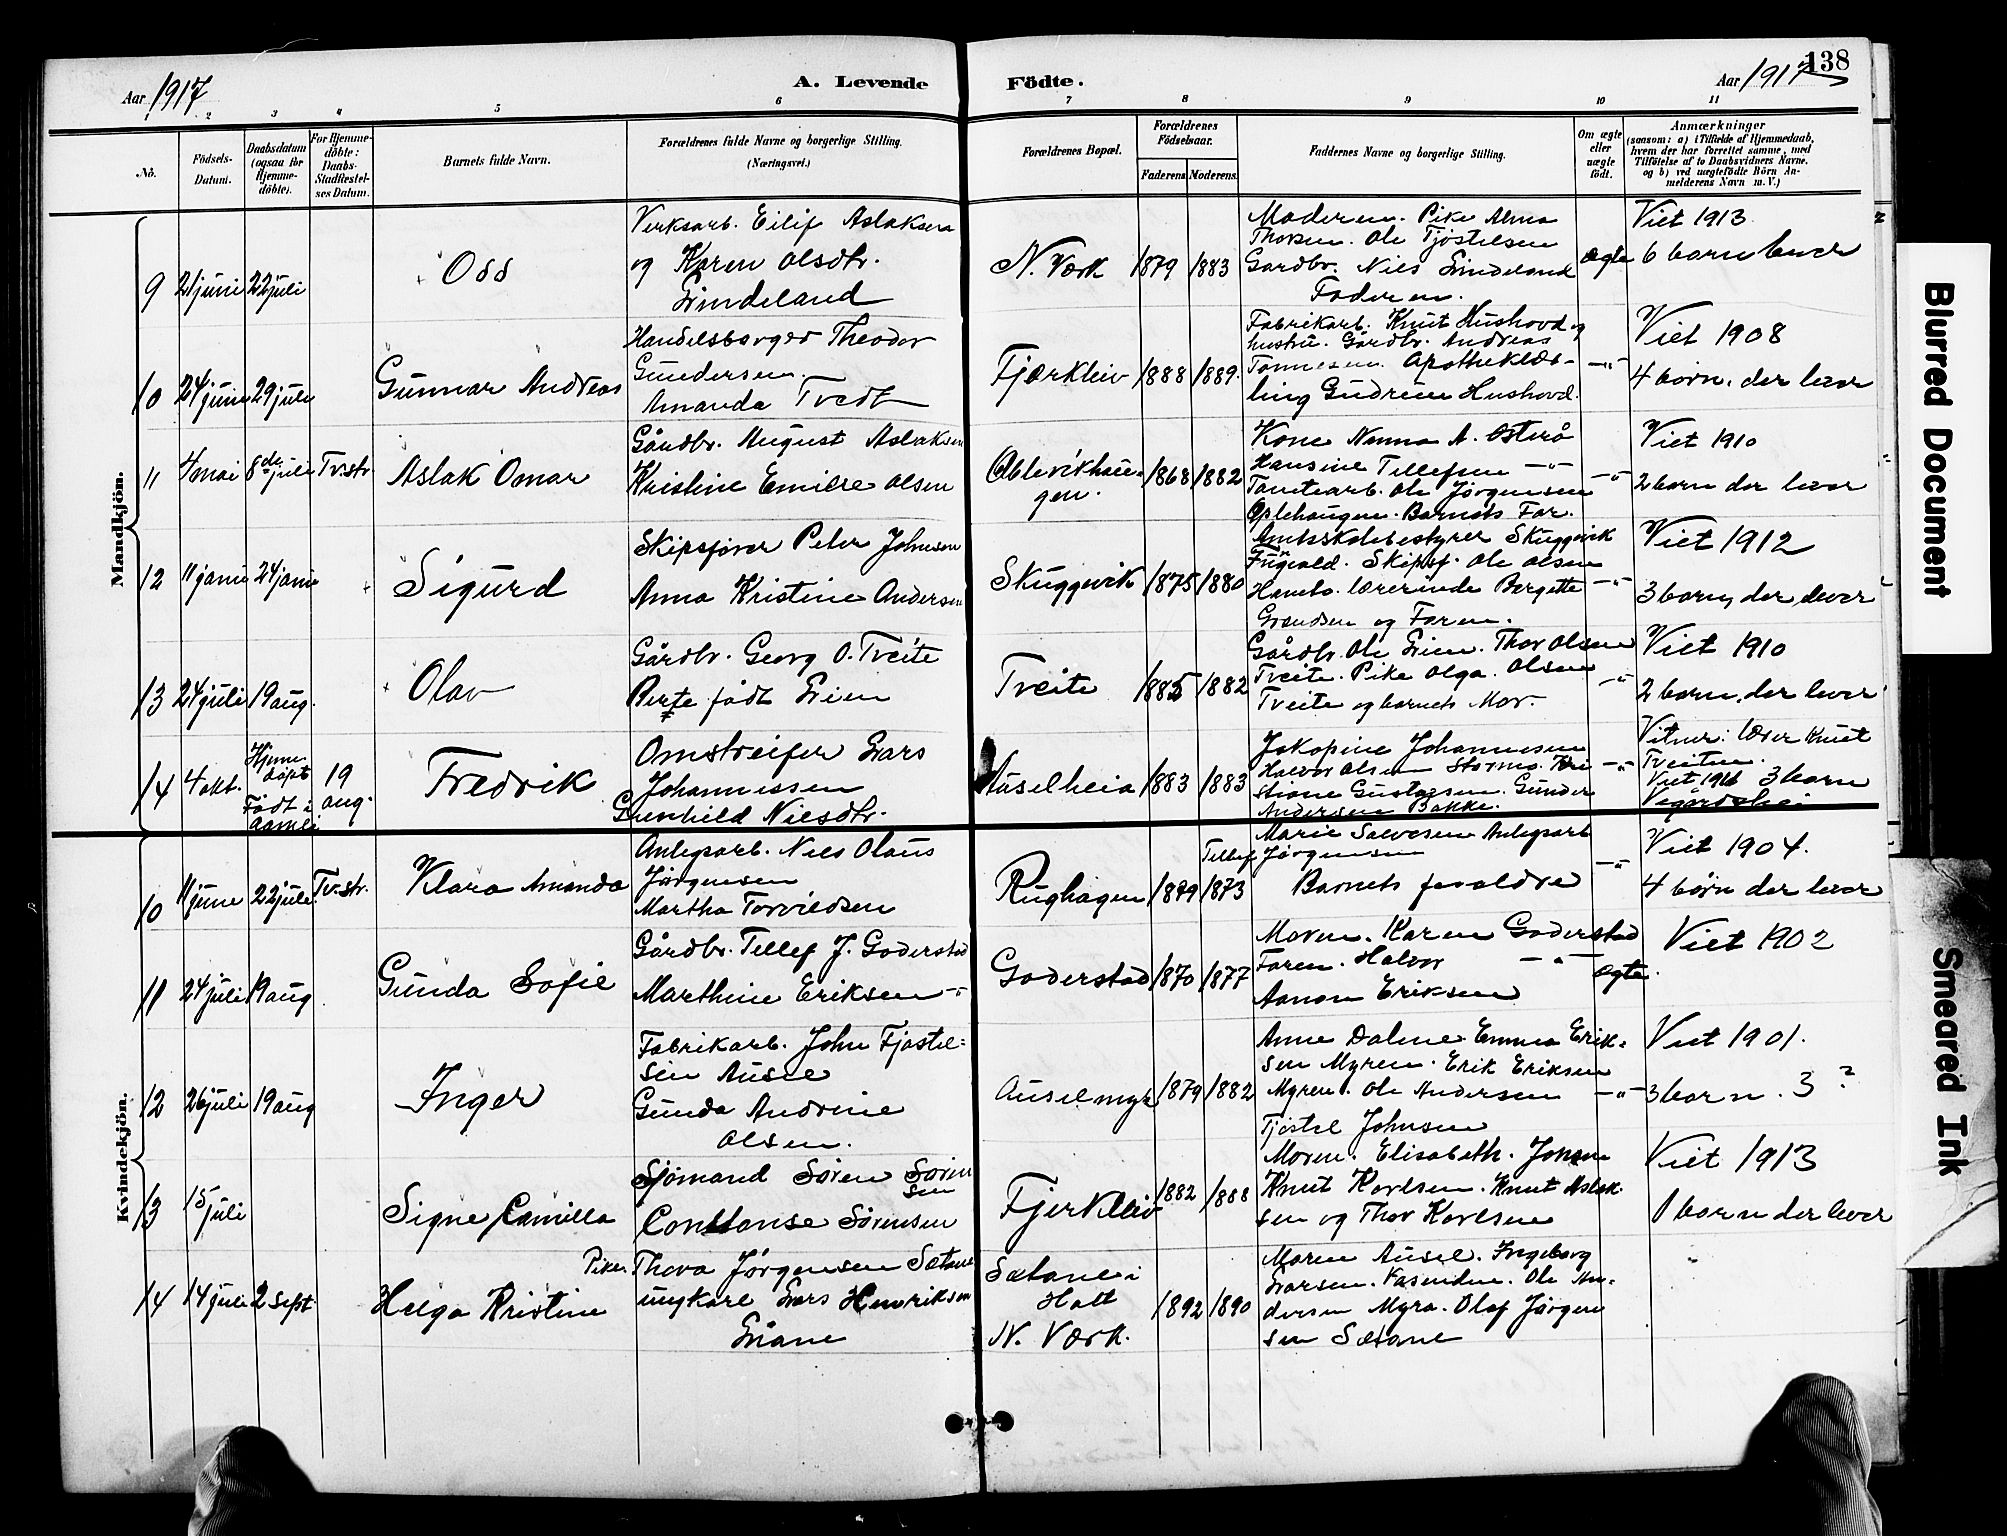 138
Aar 1917
A. Levende
Födte.
Aar 1917
1 2 3 4 5 6 7 8 9 10 11
No.
Födsels-
Datum.
Daabsdatum
(ogsaa for
Hjemme-
döbte).
For Hjemme-
döbte:
Daabs-
Stadfestel-
ses Datum.
Barnets fulde Navn.
Forældrenes fulde Navne og borgerlige Stilling.
(Næringsvei.)
Forældrenes Bopæl.
Forældrenes
Födselsaar.
Faderens Moderens.
Faddernes Navne og borgerlige Stilling.
Om ægte
eller
uægte
födt.
Anmærkninger
(saasom: a) i Tilfælde af Hjemmedaab,
hvem der har forrettet samme, med
Tilföielse af to Daabsvidners Navne,
og b) ved uægtefödte Börn An-
melderens Navn m. V.)
Mandkjön.
9 21 juni 22 juli
Oss
Verksarb. Eilif Aslaksen
og Karen Olsdtr.
Lindeland
N. Værk 1879 1883
Moderen. Pike Alma
Thorsen. Ole Tjöstelsen
Gardbr. Niels Lindeland
Faderen.
ægte
Viet 1913
6 barn lever
10 24 juni 29 juli
Gunnar Andreas
Handelsborger Theodor
Gundersen
Amanda Tvedt
Fjærkleiv 1888 1889.
Fabrikarb. Knut Hushovd og
hustru. Gårdbr. Andreas
Tönnesen. Apothekler-
ling Gudrun Hushovd.
-"-
Viet 1908
4 börn, der lever
11 4 mai 8de juli Tv.str.
Aslak Omar
Gårdbr. August Aslaksen
Kristine Emilie Olsen
Oblevikhau-
gen. 1868 1882
Kone Nanna A. Osterå
Hansine Tellefsen -"-
Tomtearb. Ole Jörgensen
Oplehaugen. Barnets Far.
-"-
Viet 1910
2 barn der lever
12 11 juni 24 juni
Sigurd
Skipsförer Peter Johnsen
Anna Kristine Andersen
Skuggevik 1875 1880
Amtsskolebestyrer Skuggevik
Skipsf. Ole Olsen
lærerinde Bergette
og Faren.
-"-
Viet 1912
3 barn, der lever
13 24 juli 19 aug.
Olav
Gårdbr. Georg O. Tveite
Berte födt Lien
Tveite 1885 1882
Gårdbr. Ole Lien. Thor Olsen
Tveite. Pike Olga Olsen
Tveite og barnets Mor.
-"-
Viet 1910
2 barn, der lever
14 4 okt. Hjemme-
döpt
Födt i
Aamli
19
aug.
Fredrik
Omstreifer Lars
Johannessen
Gunhild Nielsdtr.
Auselheia 1883 1883
Jakopine Johannesen
Halvor Olsen Stormo. Kri-
stiane Gustavsen. Gunder
Andersen Bakke.
-"-
Vitner: lærer Knut
Tveiten
Viet 1916 3 barn
Vegårdshei
Kvindekjön.
10 11 june 22 jule Tv.str.
Klara Amanda
Anlegsarb. Niels Olaus
Jörgensen
Martha Torvildsen
Rughagen 1879 1873
Marie Salvesen Anlegsarb
Tellef Jörgensen
Barnets foreldre
-"-
Viet 1904.
4 börn der lever
11 24 juli 19 aug
Gunda Sofie
Gårdbr. Tellef J. Goderstad
Marthine Eriksen -"-
Goderstad 1870 1877
Moren. Karen Goderstad
Faren. Halvor -"-
Aanon Eriksen
ægte.
Viet 1902
12 26 juli 19 aug
Inger
Fabrikarb. John Tjöstel-
sen Ausel
Gunda Andrine
Olsen.
Auselmyr 1879 1882
Anne Dalene Emma Erik-
sen Myren. Erik Eriksen
Myren. Ole Andersen
Tjöstel Johnsen
-"-
Viet 1901.
3 barn. 3 ?
13 15 juli
Signe Camilla
Sjömand Sören Sören
sen
Constanse Sörensen
Fjerkleiv 1882 1888
Moren. Elisabeth Jonsen
Knut Karlsen. Knut Aslak-
sen og Thor Karlsen
Viet 1913
1 barn der lever
14 14 juli 2 sept.
Helga Kristine
Pike. Thora Jörgensen Sætane
ungkarl Lars Henriksen
Liane
Sætane i
Holt
N. Værk. 1892 1890
Maren Ausel. Ingeborg
Larsen. Vasenden. Ole An-
dersen Myra. Olaf Jörgen
sen Sætane
Blurred Document
Smeared Ink